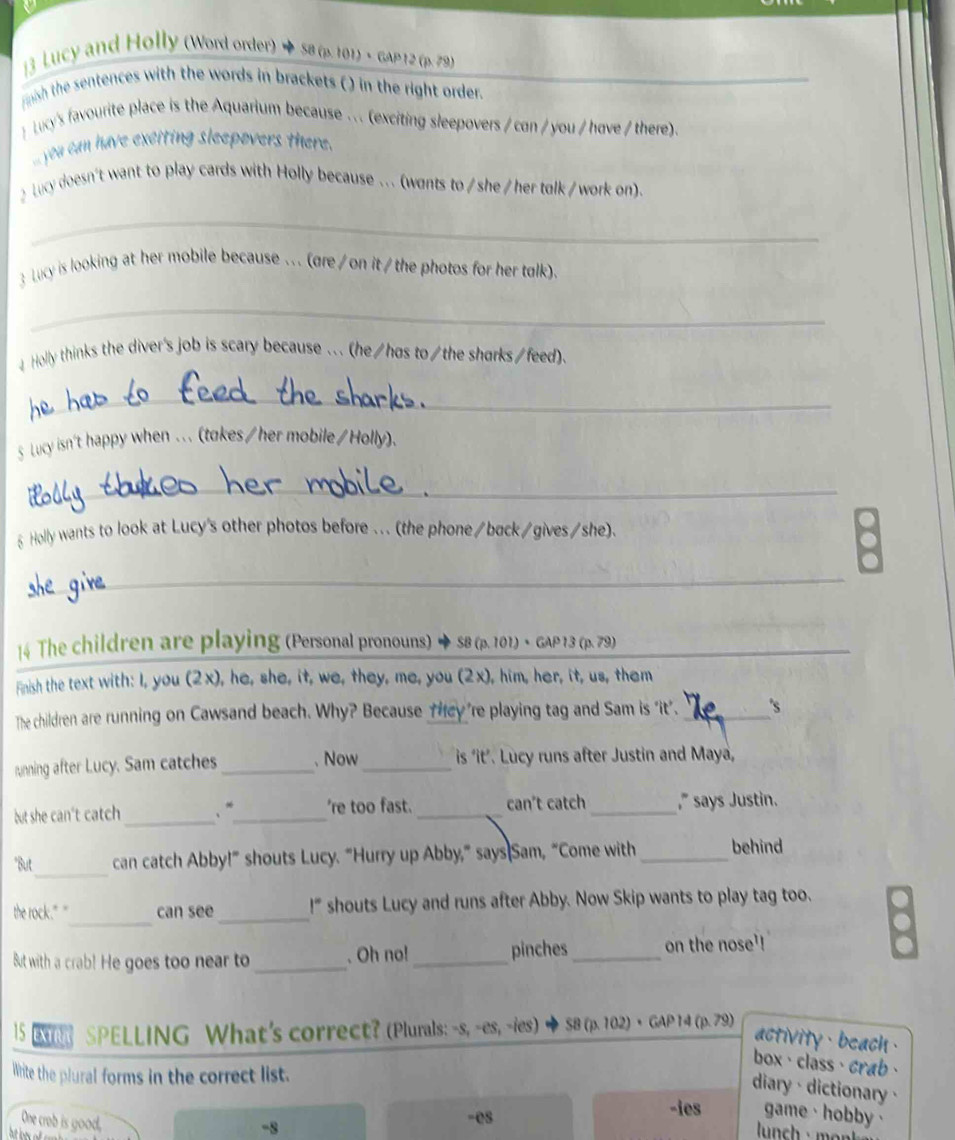 13 Lucy and Holly (Word order) → SB (p. 101) • GAP 12 (p. 79)
Finish the sentences with the words in brackets () in the right order.
1 Lucy's favourite place is the Aquarium because … (exciting sleepovers / can / you / have / there).
… you can have exciting sleepovers there.
2 Lucy doesn't want to play cards with Holly because … (wants to / she / her talk / work on).
3 Lucy is looking at her mobile because … (are / on it / the photos for her talk).
4 Holly thinks the diver's job is scary because … (he / has to / the sharks / feed).
he has to feed the sharks.
5 Lucy isn't happy when … (takes / her mobile / Holly).
Holly takes her mobile.
6 Holly wants to look at Lucy's other photos before … (the phone / back / gives / she).
she give
14 The children are playing (Personal pronouns) → SB (p. 101) • GAP 13 (p. 79)
Finish the text with: I, you (2x), he, she, it, we, they, me, you (2x), him, her, it, us, them
The children are running on Cawsand beach. Why? Because they're playing tag and Sam is 'it'. He 's
running after Lucy. Sam catches ________. Now ________ is 'it'. Lucy runs after Justin and Maya,
but she can't catch ________. "________'re too fast. ________ can't catch ________," says Justin.
"But ________ can catch Abby!" shouts Lucy. "Hurry up Abby," says Sam, "Come with ________ behind
the rock." "________ can see ________!" shouts Lucy and runs after Abby. Now Skip wants to play tag too.
But with a crab! He goes too near to ________. Oh no! ________ pinches ________ on the nose¹!
15 EXTRA SPELLING What's correct? (Plurals: -s, -es, -ies) → SB (p. 102) • GAP 14 (p. 79)
Write the plural forms in the correct list.
activity · beach ·
box · class · crab ·
diary · dictionary ·
game · hobby ·
lunch ·
One crab is good,
-s
-es
-ies